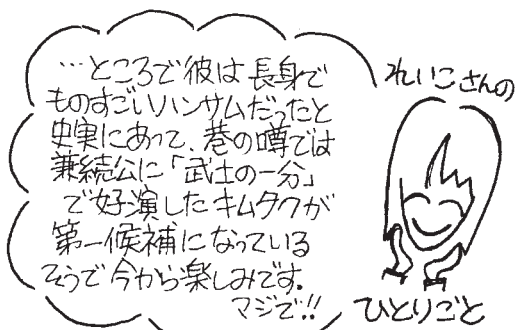 …ところで彼は長身で
ものすごいハンサムだったと
史実にあって、巷の噂では
兼続公に「武士の一分」
で好演したキムタクが
第一候補になっている
そうで今から楽しみです。
マジで!!
れいこさんの
ひとりごと